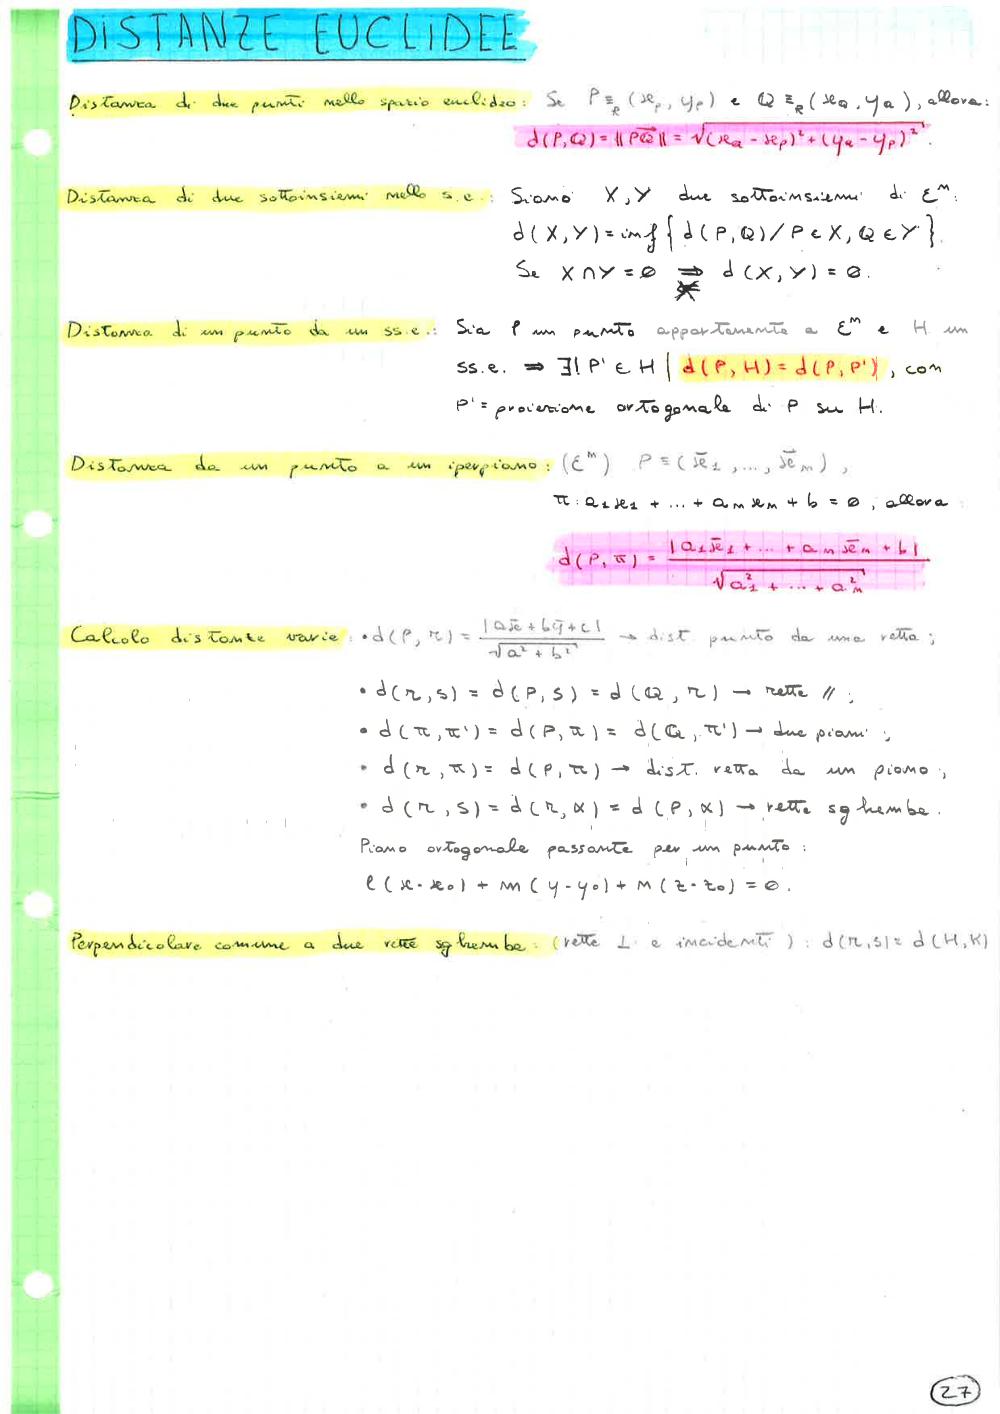 DISTANZE EUCLIDEE
Distanza di due punti nello spazio euclideo: Se P ≡_R (x_P, y_P) e Q ≡_R (x_Q, y_Q), allora:
d(P,Q) = ||PQ→|| = √((x_Q - x_P)² + (y_Q - y_P)²).
Distanza di due sottoinsiemi nello s.e.: Siano X, Y due sottoinsiemi di Ɛⁿ:
d(X,Y) = inf { d(P,Q) / P ∈ X, Q ∈ Y }.
Se X ∩ Y = ø ⇒ d(X,Y) = 0.
Distanza di un punto da un ss.e.: Sia P un punto appartenente a Ɛⁿ e H un
ss.e. ⇒ ∃! P' ∈ H | d(P,H) = d(P,P'), con
P' = proiezione ortogonale di P su H.
Distanza da un punto a un iperpiano: (Ɛⁿ) P ≡ (x̄₁, ..., x̄ₙ),
π: a₁x₁ + ... + aₙxₙ + b = 0, allora
d(P, π) = |a₁x̄₁ + ... + aₙx̄ₙ + b| / √(a₁² + ... + aₙ²)
Calcolo distanze varie: • d(P, r) = |ax̄ + bȳ + c| / √(a² + b²) → dist. punto da una retta;
• d(r,s) = d(P,s) = d(Q,r) → rette //;
• d(π,π') = d(P,π) = d(Q,π') → due piani;
• d(r,π) = d(P,π) → dist. retta da un piano;
• d(r,s) = d(r,α) = d(P,α) → rette sghembe.
Piano ortogonale passante per un punto:
l(x-x₀) + m(y-y₀) + n(z-z₀) = 0.
Perpendicolare comune a due rette sghembe: (rette ⊥ e incidenti): d(r,s) = d(H,K)
27